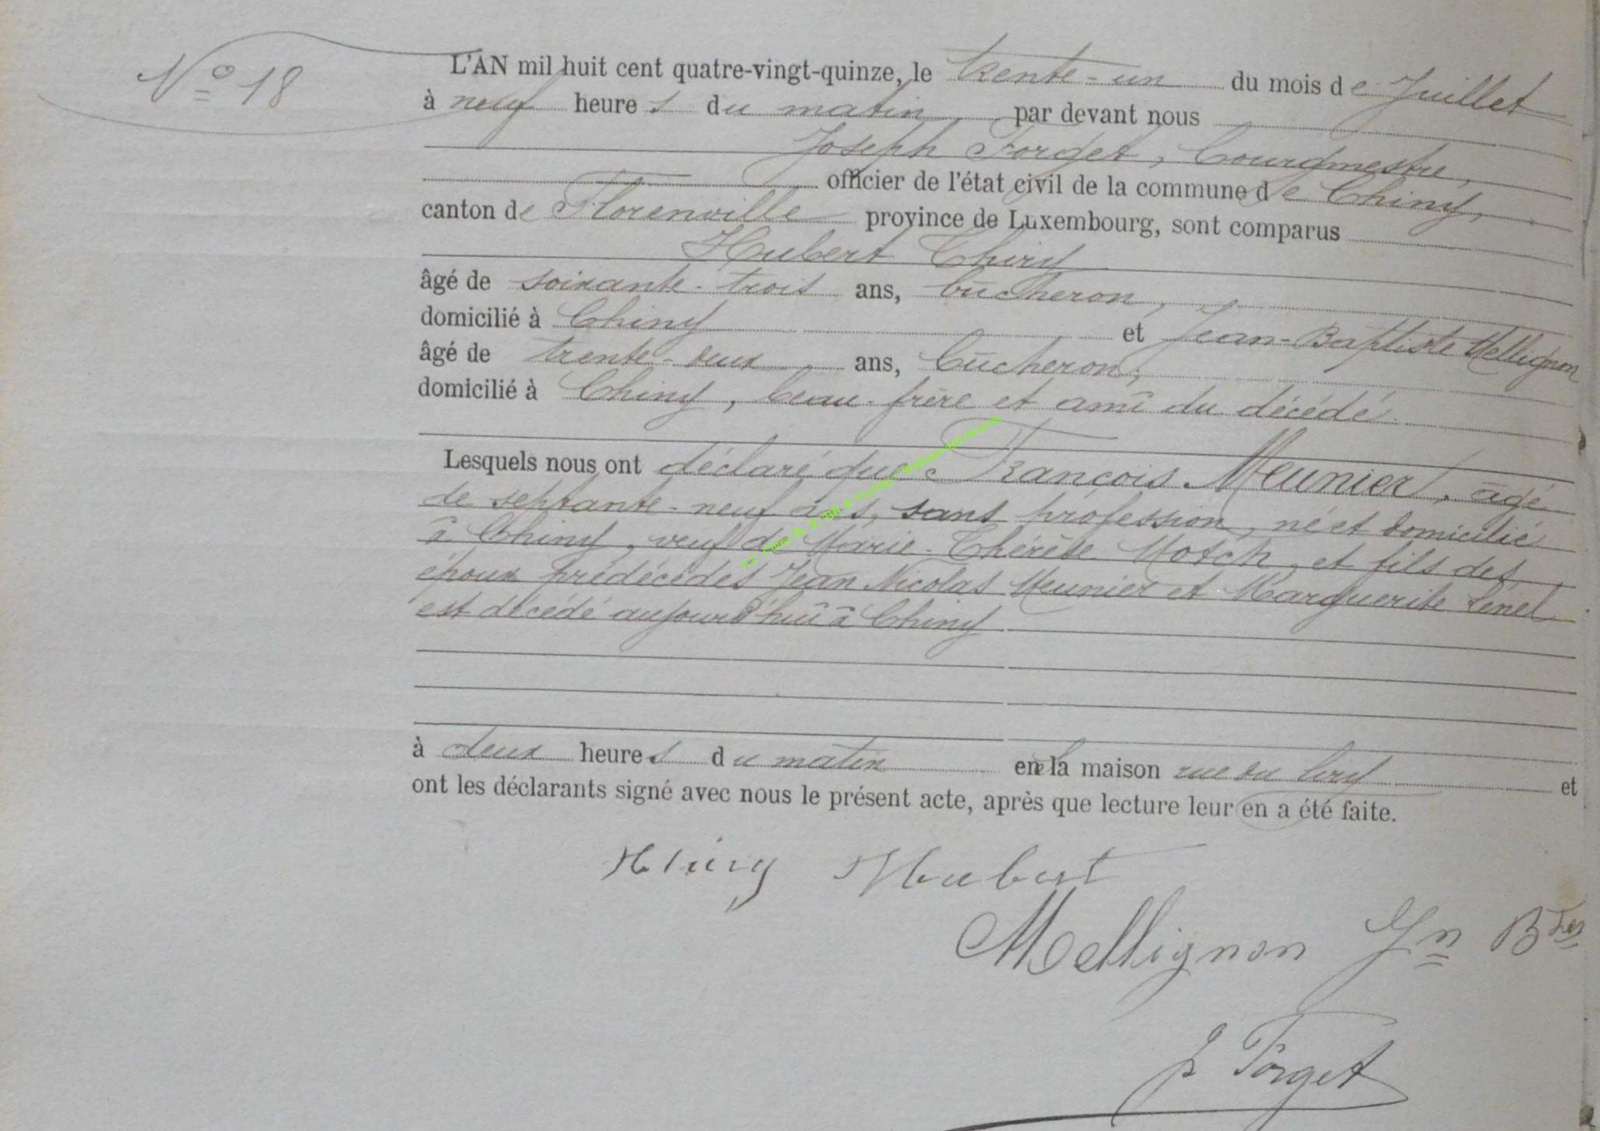 N° 18
L'AN mil huit cent quatre-vingt-quinze, le trente-un du mois de Juillet
à neuf heures du matin par devant nous
Joseph Forget, Bourgmestre,
officier de l'état civil de la commune de Chiny,
canton de Florenville province de Luxembourg, sont comparus
Hubert Thiry
âgé de soixante-trois ans, bûcheron,
domicilié à Chiny et Jean-Baptiste Mellignon
âgé de trente-deux ans, bûcheron,
domicilié à Chiny, beau-frère et ami du décédé.
Lesquels nous ont déclaré que François Meunier, âgé
de septante-neuf ans, sans profession, né et domicilié
à Chiny, veuf de Marie-Thérèse Motch, et fils des
époux prédécédés Jean Nicolas Meunier et Marguerite
est décédé aujourd'hui à Chiny
à deux heures du matin en la maison rue du et
ont les déclarants signé avec nous le présent acte, après que lecture leur en a été faite.
Thiry Hubert
Mellignon Jn Bte
J Forget